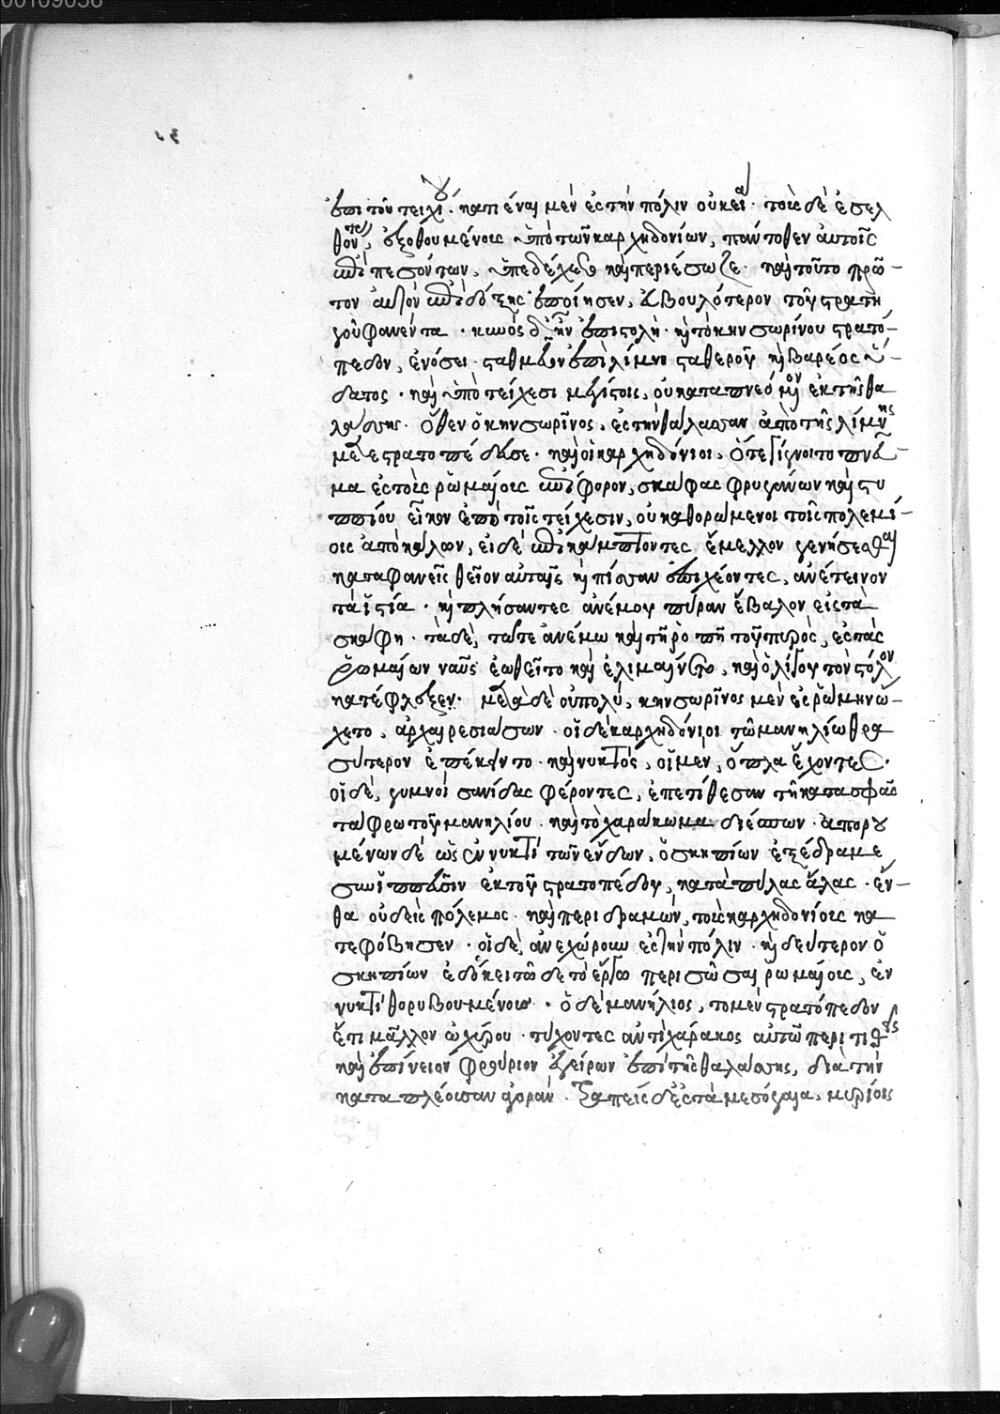 00109056
ἐπὶ τοῦ τειχίου. κατιέναι μὲν ἐς τὴν πόλιν οὐκ εἴα. τοῖς δὲ ἐσελ
θοῦσιν, ἐξωθουμένοις ὑπὸ τῶν καρχηδονίων, πάντοθεν αὐτοῖς
ἐπιπεσόντων, ὑπεδέχετο καὶ περιέσωζε. καὶ τοῦτο πρῶ
τον αὐτὸν ἐπὶ δόξης ἐποίησεν, εὐβουλότερον τοῦ στρατη
γοῦ φανέντα. κυνὸς δ' ἦν ἐπιτολή. καὶ τὸ κηνσωρίνου στρατό
πεδον, ἐνόσει. σταθμεῦον ἐπὶ λίμνῃ σταθεροῦ καὶ βαρέος ὕ
δατος. καὶ ὑπὸ τείχεσι μεγίστοις, οὐ καταπνεόμενον ἐκ τῆς θα
λάσσης. ὅθεν ὁ κηνσωρῖνος, ἐς τὴν θάλασσαν ἀπὸ τῆς λίμνης
μετεστρατοπέδευσε. καὶ οἱ καρχηδόνιοι, ὅτε γίγνοιτο πνεῦ
μα ἐς τοὺς ῥωμαίους ἐπίφορον, σκάφας φρυγάνων καὶ στυ
ππίου εἷλκον ὑπὸ τοῖς τείχεσιν, οὐ καθορώμενοι τοῖς πολεμί
οις ἀπὸ κάλων, εἰ δὲ ἐπικάμπτοντες ἔμελλον γενήσεσθαι
καταφανεῖς θεῖον αὐταῖς καὶ πίσσαν ἐπιχέοντες, ἀνέτεινον
τὰ ἱστία. καὶ πλήσαντες ἀνέμου πῦραν ἔβαλον εἰς τὰ
σκάφη. τὰ δὲ, τῷ τε ἀνέμῳ καὶ τῇ ῥοπῇ τοῦ πυρὸς, ἐς τὰς
ῥωμαίων ναῦς ἐωθεῖτο καὶ ἐλυμαίνετο, καὶ ὀλίγου τὸν στόλον
κατέφλεξεν. μετὰ δὲ οὐ πολύ, κηνσωρῖνος μὲν ἐς ῥώμην ᾤ
χετο, ἀρχαιρεσιάσων. οἱ δὲ καρχηδόνιοι τῷ μανηλίῳ θρα
σύτερον ἐπέκειντο. καὶ νυκτὸς, οἱ μὲν, ὅπλα ἔχοντες.
οἱ δὲ, γυμνοὶ σανίδας φέροντες, ἐπετίθεσαν τῇ κατὰ σφᾶς
τάφρῳ τοῦ μανηλίου. καὶ τὸ χαράκωμα διέσπων. ἀπορου
μένων δὲ ὡς ἐν νυκτὶ τῶν ἔνδον, ὁ σκηπίων ἐξέδραμε
σὺν ἱππεῦσιν ἐκ τοῦ στρατοπέδου, κατὰ πύλας ἄλλας. ἔν
θα οὐδεὶς πόλεμος. καὶ περιδραμὼν, τοὺς καρχηδονίους κα
τεφόβησεν. οἱ δὲ, ἀνεχώρουν ἐς τὴν πόλιν. καὶ δεύτερον ὁ
σκηπίων ἐδόκει τῷδε τὸ ἔργῳ περισῶσαι ῥωμαίους, ἐν
νυκτὶ θορυβουμένους. ὁ δὲ μανήλιος, τὸ μὲν στρατόπεδον
ἔτι μᾶλλον ὠχύρου. τεῖχός τε ἀντὶ χάρακος αὐτῷ περιτιθεὶς
καὶ ἐπίνειον φρούριον ἐγείρων ἐπὶ τῆς θαλάσσης, διὰ τὴν
καταπλέουσαν ἀγοράν. τραπεὶς δ' ἐς τὰ μεσόγαια, μυρίοις